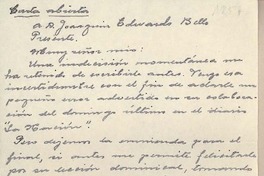 Carta abierta
a D. Joaquín Edwards Bello
Presente.
Muy señor mío:
Una indecisión momentánea me
ha retenido de escribirle antes. Tengo esa
incertidumbre con el fin de aclarle un
pequeño error advertido en su colabora-
ción del domingo último en el diario
"La Nación".
Pero dejemos la enmienda para el
final, si antes me permite felicitarle
por su sección dominical, tomando